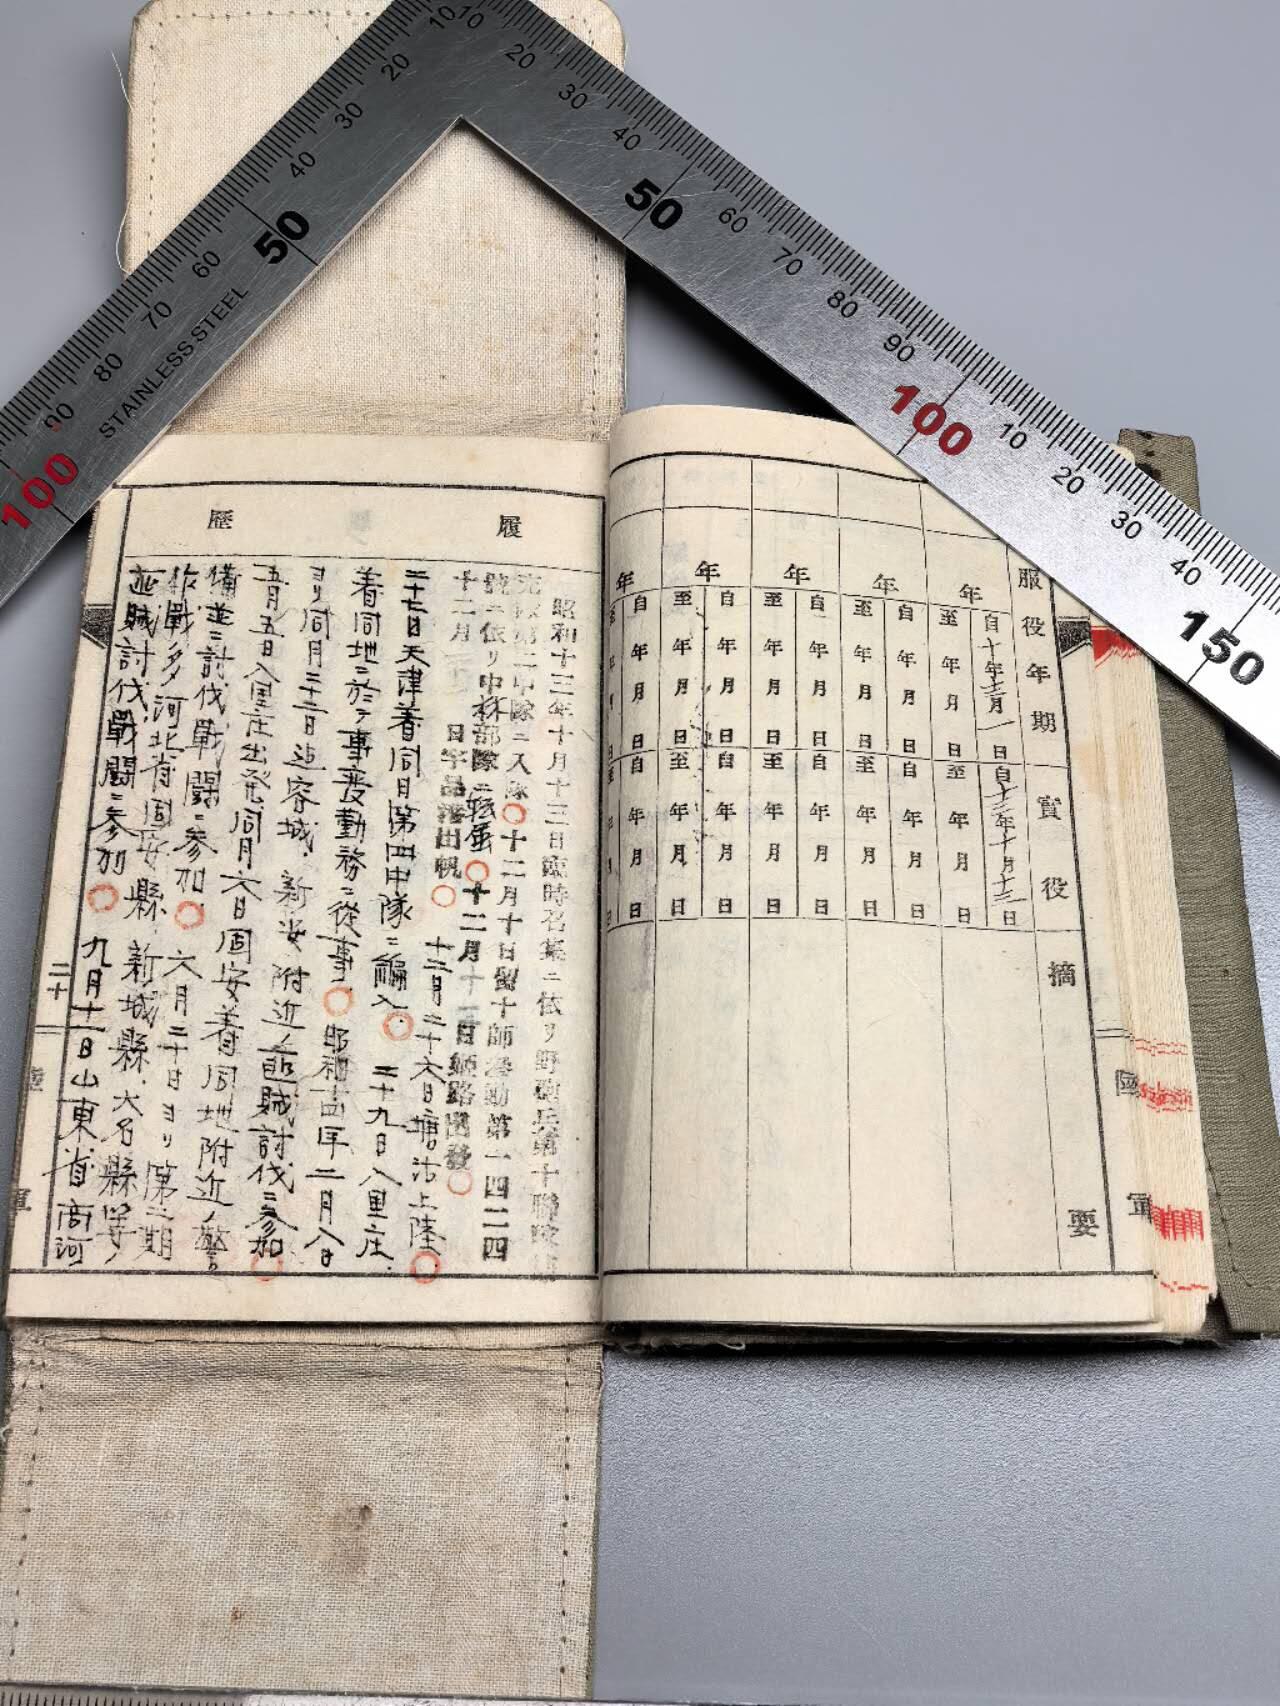 10 20 30 40 50 60 70 80 90 100
STAINLESS STEEL
10 20 30 40 50 60 70 80 90 100 10 20 30 40 150
服役年期 實役 摘要
年 自十年十二月一日 至 年 月 日 自十三年十月十三日 至 年 月 日
年 自 年 月 日 至 年 月 日 自 年 月 日 至 年 月 日
年 自 年 月 日 至 年 月 日 自 年 月 日 至 年 月 日
年 自 年 月 日 至 年 月 日 自 年 月 日 至 年 月 日
年 自 年 月 日 至 年 月 日 自 年 月 日 至 年 月 日
陸 軍
履歷
昭和十三年十月十三日臨時召集ニ依リ野砲兵第十聯隊
第二中隊ニ入隊○十二月十日留十師動第一四二四
號ニ依リ中林部隊ニ轉屬○十二月十一日姫路出發○
十二月 日宇品港出帆○十二月二十六日塘沽上陸○
二十七日天津着同日第四中隊ニ編入○二十九日八里庄
着同地ニ於テ事変勤務ニ從事○昭和十四年二月八日
ヨリ同月二十二日迄容城、新安附近ノ匪賊討伐ニ参加○
五月五日八里庄出発同月六日固安着同地附近ノ警
備並ニ討伐戰鬪ニ参加○六月二十日ヨリ第二期
作戰 河北省固安縣、新城縣、大名縣等ノ
匪賊討伐戰鬪ニ参加○九月十一日山東省商河
二十
陸 軍